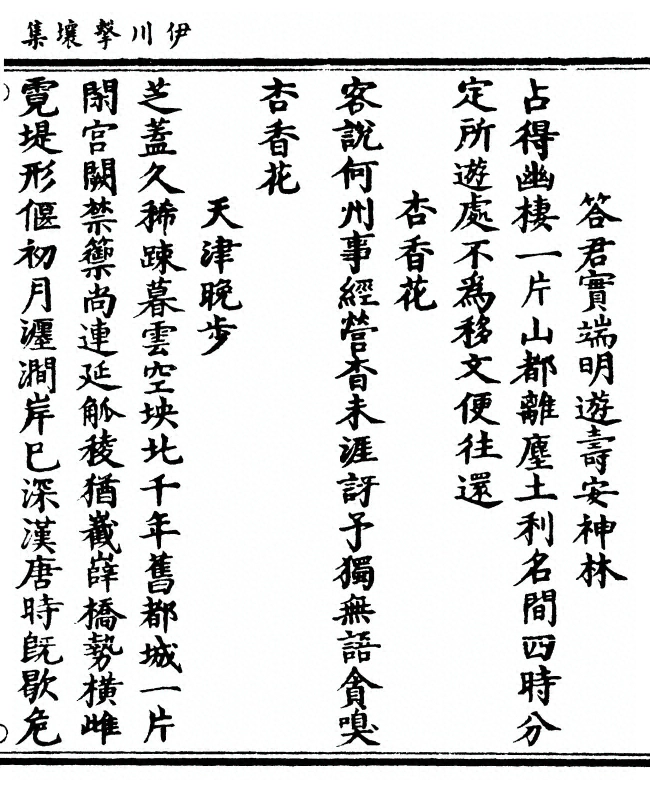 伊川擊壤集
答君實端明遊壽安神林
占得幽棲一片山都離塵土利名間四時分
定所遊處不為移文便往還
杏香花
客說何州事經營杳未涯訝予獨無語貪嗅
杏香花
天津晚步
芝蓋久稀踈暮雲空坱圠千年舊都城一片
閑宮闕禁籞尚連延觚稜猶嶻嶭橋勢橫雌
霓堤形偃初月瀍澗岸已深漢唐時旣歇危